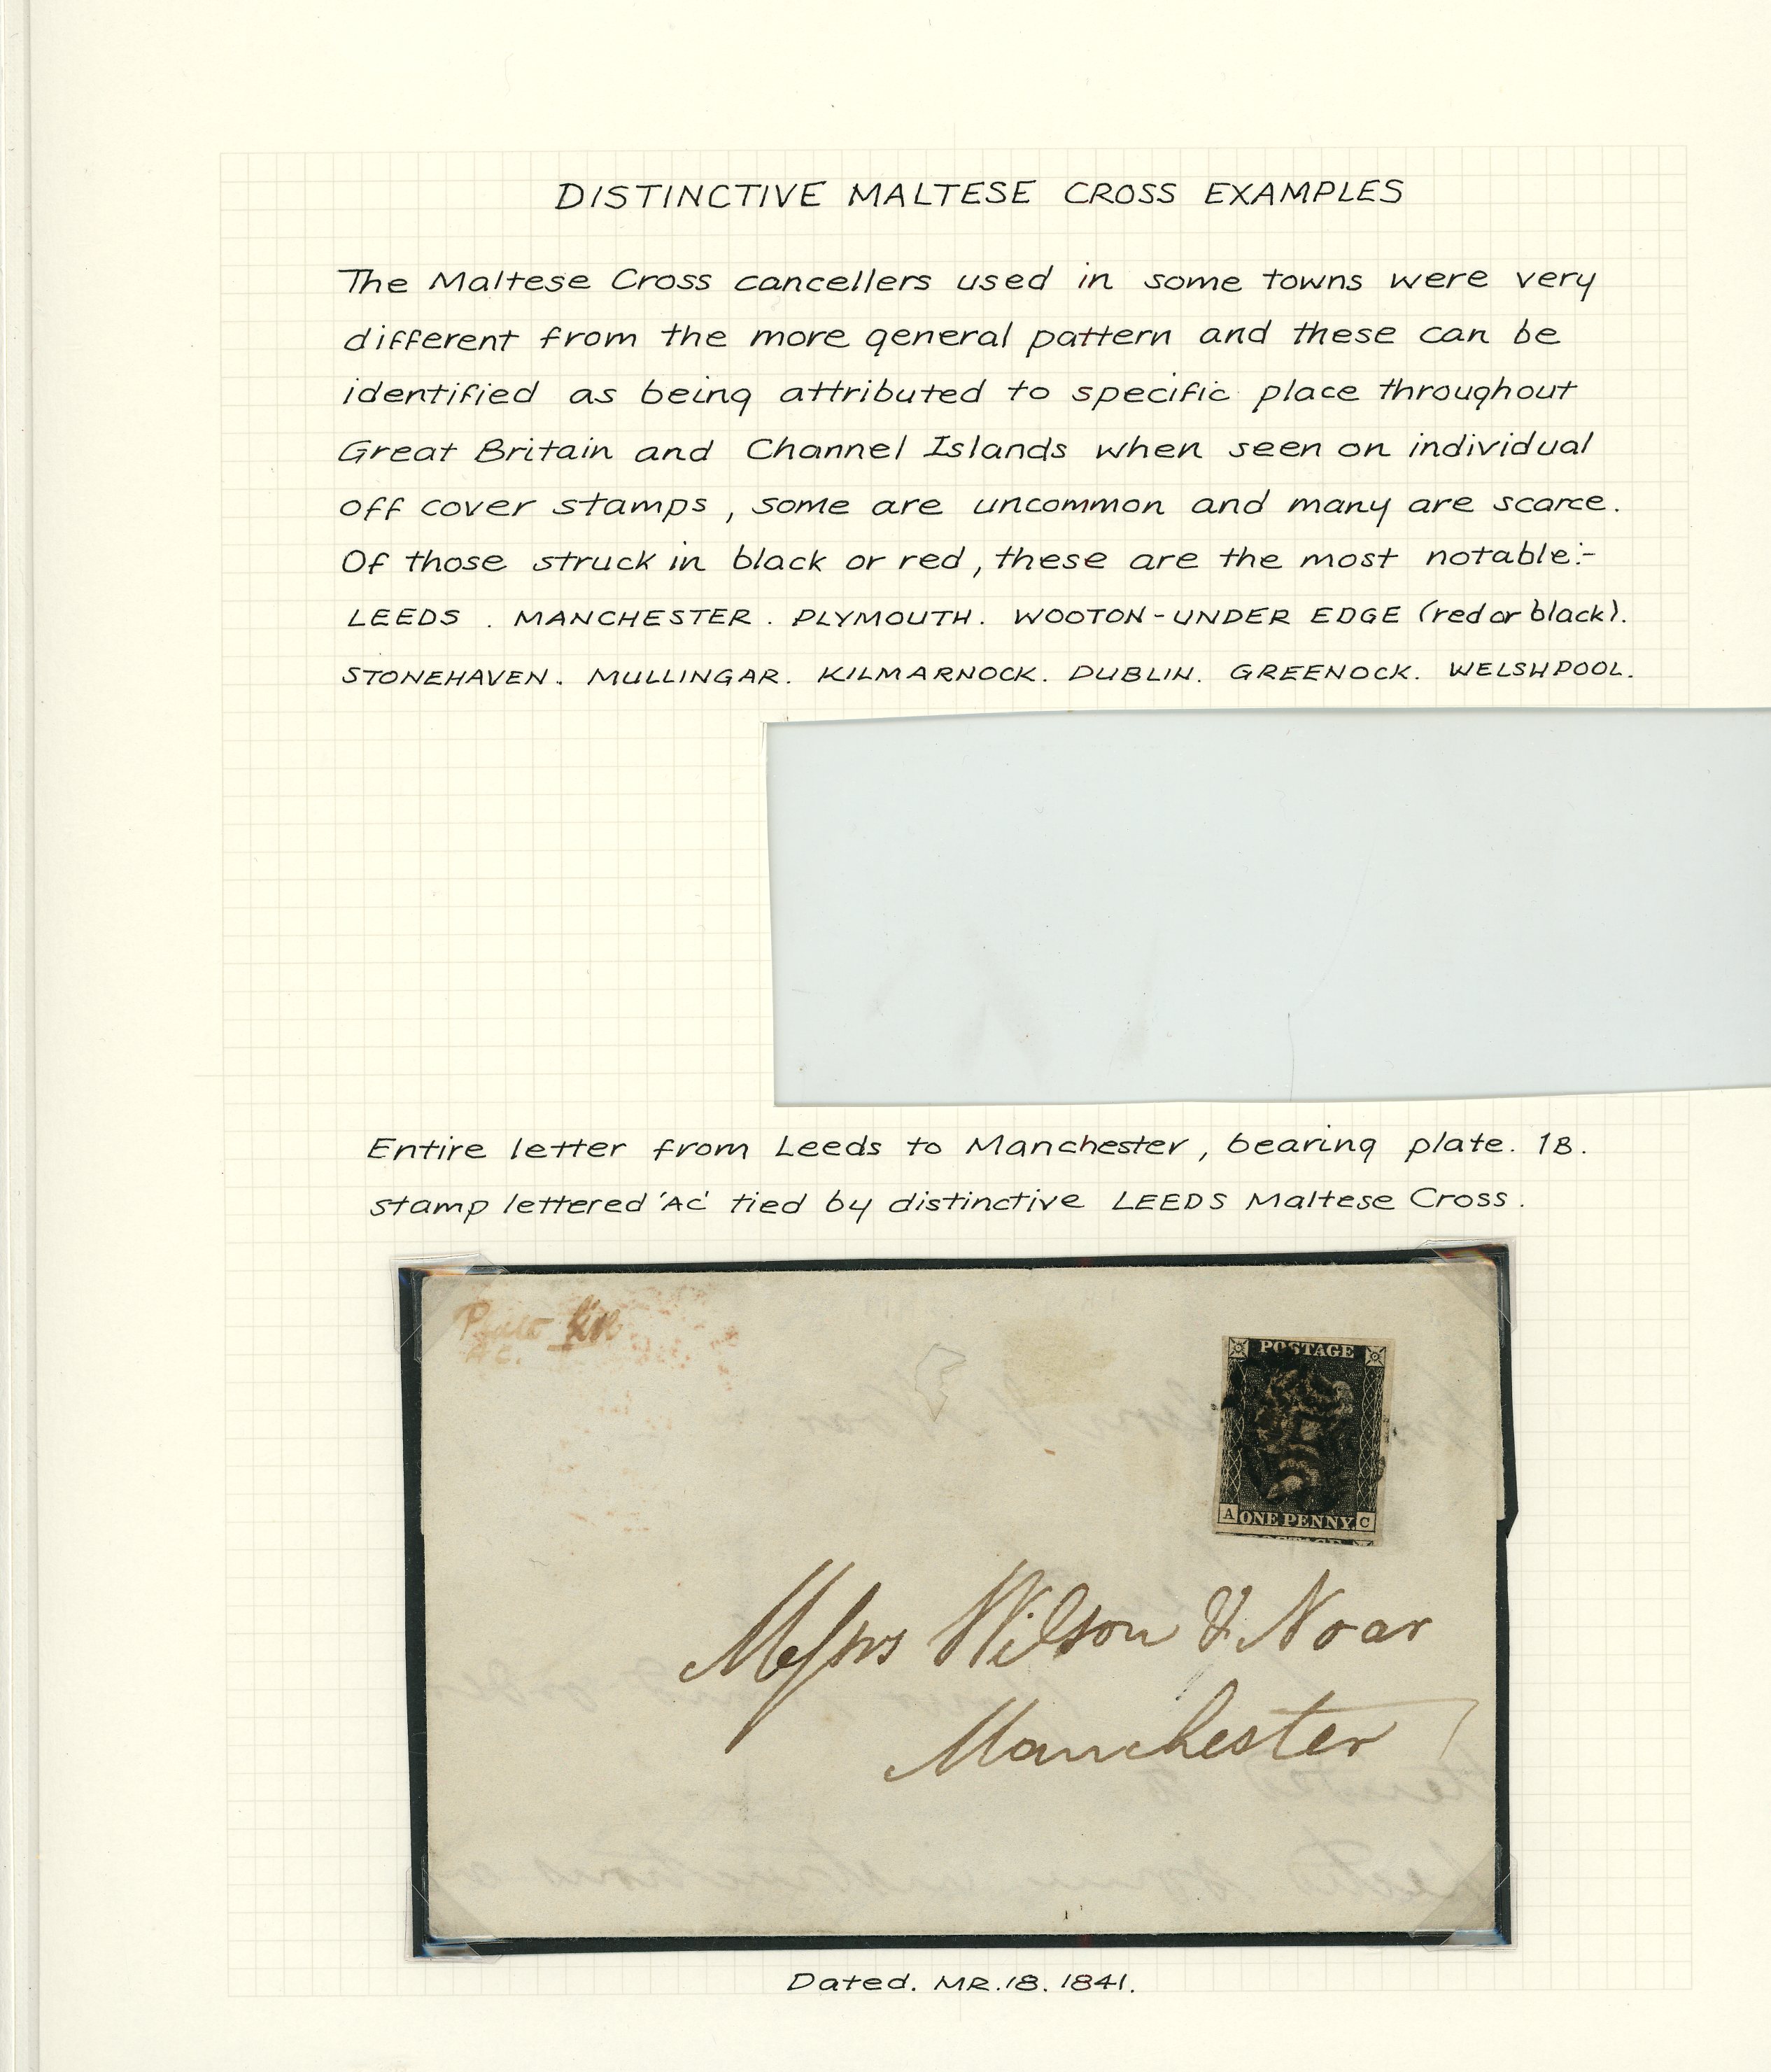 DISTINCTIVE MALTESE CROSS EXAMPLES
The Maltese Cross cancellers used in some towns were very
different from the more general pattern and these can be
identified as being attributed to specific place throughout
Great Britain and Channel Islands when seen on individual
off cover stamps, some are uncommon and many are scarce.
Of those struck in black or red, these are the most notable:-
LEEDS. MANCHESTER. PLYMOUTH. WOOTON-UNDER EDGE (red or black).
STONEHAVEN. MULLINGAR. KILMARNOCK. DUBLIN. GREENOCK. WELSHPOOL.
Entire letter from Leeds to Manchester, bearing plate. 1B.
stamp lettered 'AC' tied by distinctive LEEDS Maltese Cross.
POSTAGE
A ONE PENNY C
Messrs Wilson & Noar
Manchester
Dated. MR.18. 1841.